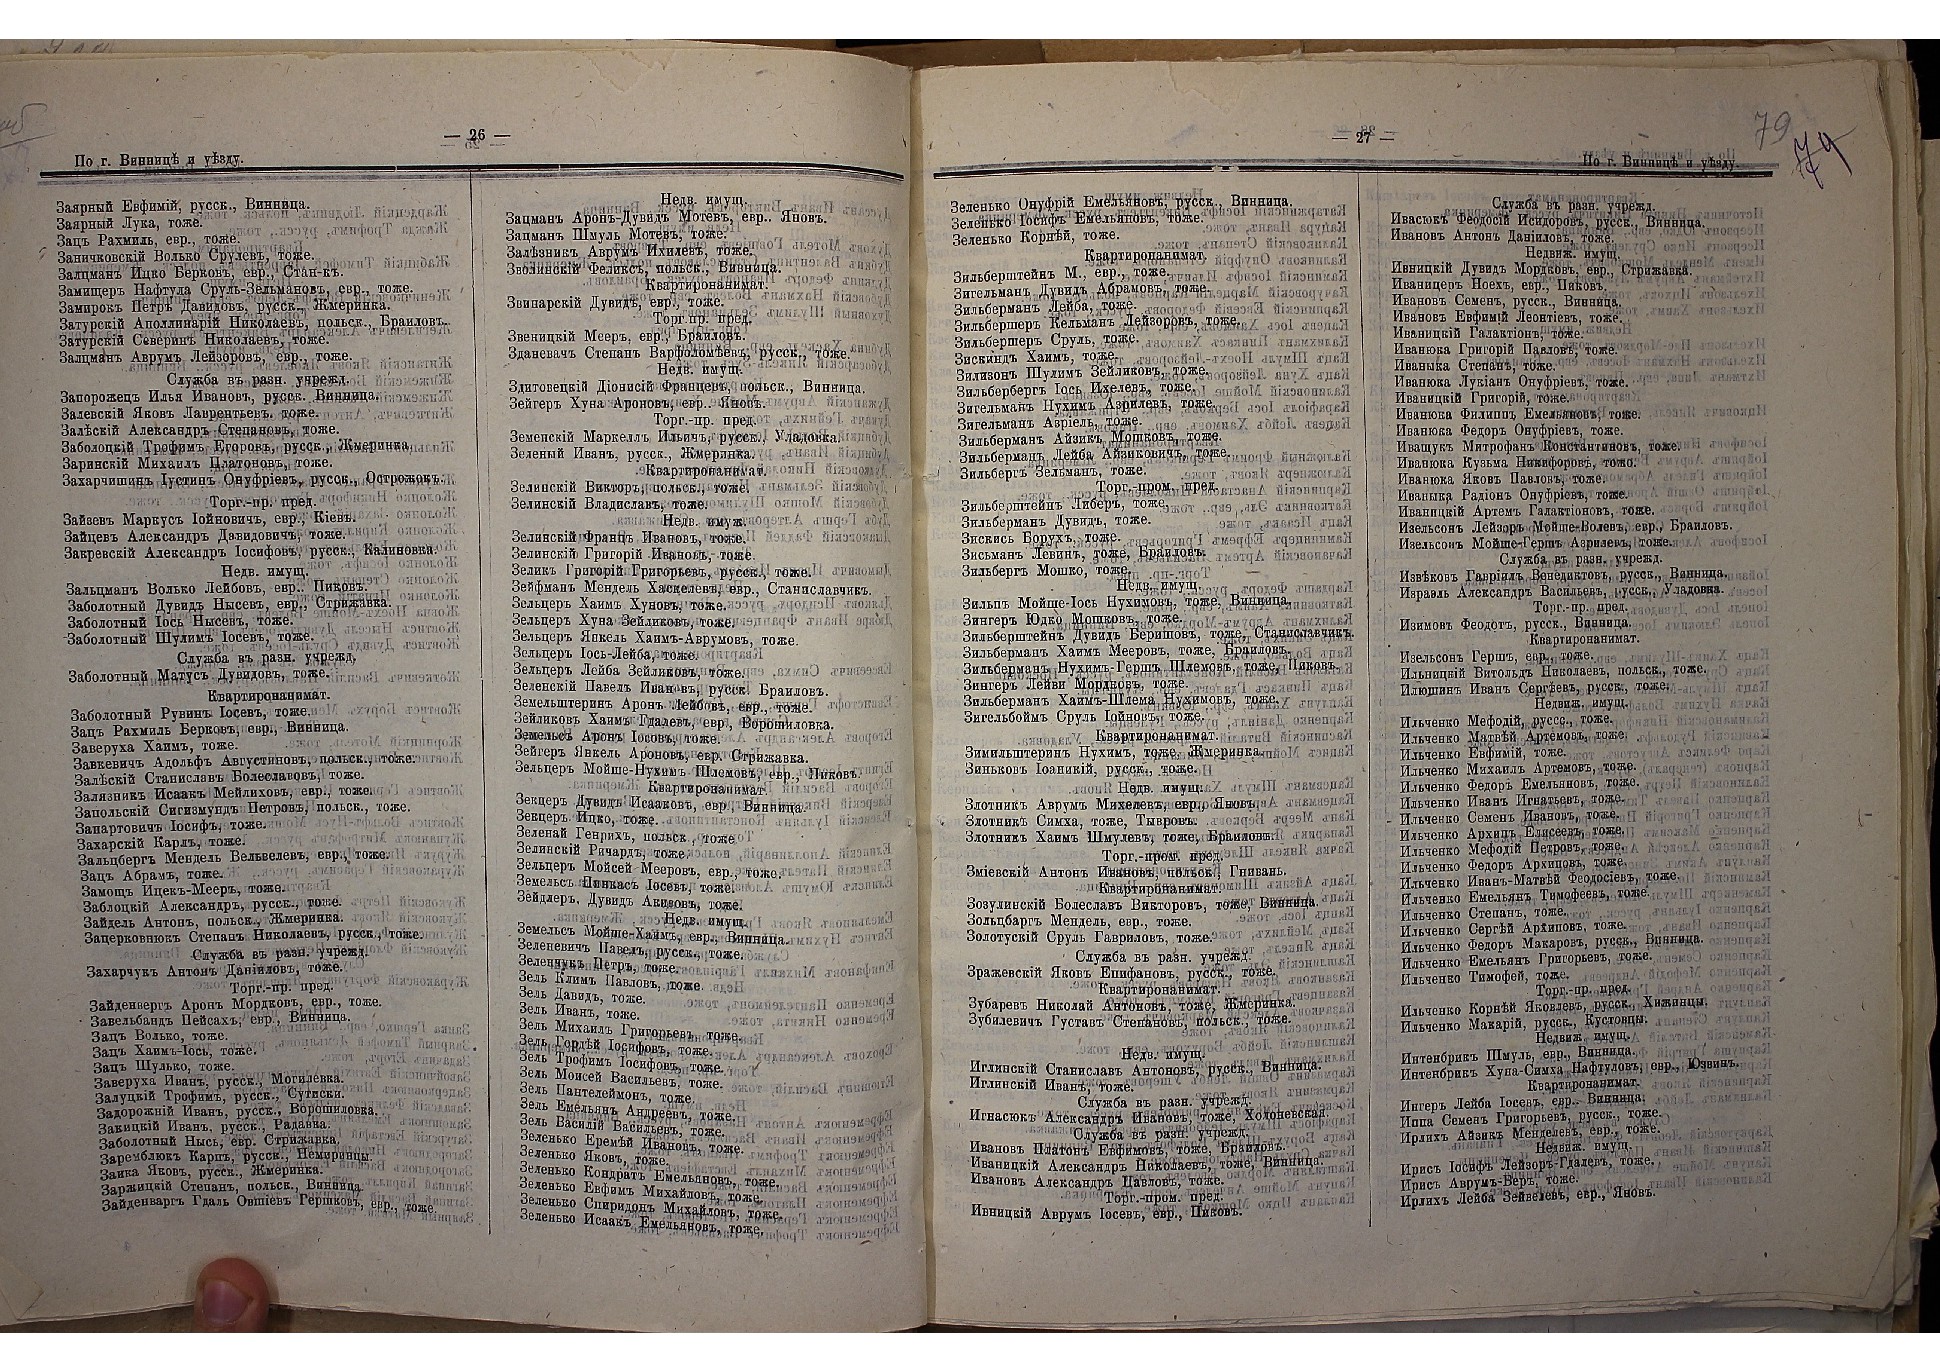 — 26 —
По г. Винницѣ и уѣзду.
Заярный Евфимій, русск., Винница.
Заярный Лука, тоже.
Зацъ Рахмиль, евр., тоже.
Заничковскій Волько Срулевъ, тоже.
Залцманъ Ицко Берковъ, евр., Стан-къ.
Замищеръ Нафтула Сруль-Зельмановъ, евр., тоже.
Замирокъ Петръ Давидовъ, русск., Жмеринка.
Затурскій Аполлинарій Николаевъ, польск., Браиловъ.
Затурскій Северинъ Николаевъ, тоже.
Залцманъ Аврумъ Лейзоровъ, евр., тоже.
Служба въ разн. учрежд.
Запорожецъ Илья Ивановъ, русск. Винница.
Залевскій Яковъ Лаврентьевъ, тоже.
Залѣскій Александръ Степановъ, тоже.
Заболоцкій Трофимъ Егоровъ, русск., Жмеринка.
Заринскій Михаилъ Платоновъ, тоже.
Захарчишинъ Іустинъ Онуфріевъ, русск., Острожокъ.
Торг.-пр. пред.
Зайзевъ Маркусъ Іойновичъ, евр., Кіевъ.
Зайцевъ Александръ Давидовичъ, тоже.
Закревскій Александръ Іосифовъ, русск., Калиновка.
Недв. имущ.
Зальцманъ Волько Лейбовъ, евр., Пиковъ.
Заболотный Дувидъ Нысевъ, евр., Стрижавка.
Заболотный Іось Нысевъ, тоже.
Заболотный Шулимъ Іосевъ, тоже.
Служба въ разн. учрежд.
Заболотный Матусъ Дувидовъ, тоже.
Квартиронанимат.
Заболотный Рувинъ Іосевъ, тоже.
Зацъ Рахмиль Берковъ, евр., Винница.
Заверуха Хаимъ, тоже.
Завкевичъ Адольфъ Августиновъ, польск., тоже.
Залѣскій Станиславъ Болеславовъ, тоже.
Залязникъ Исаакъ Мейлиховъ, евр., тоже.
Запольскій Сигизмундъ Петровъ, польск., тоже.
Запартовичъ Іосифъ, тоже.
Захарскій Карлъ, тоже.
Зальцбергъ Мендель Вельвелевъ, евр., тоже.
Зацъ Абрамъ, тоже.
Замощъ Ицекъ-Мееръ, тоже.
Заблоцкій Александръ, русск., тоже.
Зайдель Антонъ, польск., Жмеринка.
Зацерковнюкъ Степанъ Николаевъ, русск., тоже.
Служба въ разн. учрежд.
Захарчукъ Антонъ Даніиловъ, тоже.
Торг.-пр. пред.
Зайденвергъ Аронъ Мордковъ, евр., тоже.
Завельбандъ Пейсахъ, евр., Винница.
Зацъ Волько, тоже.
Зацъ Хаимъ-Іось, тоже.
Зацъ Шулько, тоже.
Заверуха Иванъ, русск., Могилевка.
Залуцкій Трофимъ, русск., Сутиски.
Задорожній Иванъ, русск., Ворошиловка.
Закицкій Иванъ, русск., Радавка.
Заболотный Нысь, евр. Стрижавка.
Заремблюкъ Карпъ, русск., Немиринцы.
Заика Яковъ, русск., Жмеринка.
Заржицкій Степанъ, польск., Винница.
Зайденваргъ Гдаль Овшіевъ Гершковъ, евр., тоже.
Недв. имущ.
Зацманъ Аронъ-Дувидъ Мотевъ, евр., Яновъ.
Зацманъ Шмуль Мотевъ, тоже.
Залѣзникъ Аврумъ Ихилевъ, тоже.
Зволинскій Феликсъ, польск., Винница.
Квартиронанимат.
Звинарскій Дувидъ, евр., тоже.
Торг пр. пред.
Звеницкій Мееръ, евр., Браиловъ.
Зданевачъ Степанъ Варфоломѣевъ, русск., тоже.
Недв. имущ.
Здитовецкій Діонисій Францевъ, польск., Винница.
Зейгеръ Хуна Ароновъ, евр., Яновъ.
Торг.-пр. пред.
Земенскій Маркеллъ Ильичъ, русск., Уладовка.
Зеленый Иванъ, русск., Жмеринка.
Квартиронанимат.
Зелинскій Викторъ, польск., тоже.
Зелинскій Владиславъ, тоже.
Недв. имуж.
Зелинскій Францъ Ивановъ, тоже.
Зелинскій Григорій Ивановъ, тоже.
Зеликъ Григорій Григорьевъ, русск., тоже.
Зейфманъ Мендель Хаскелевъ, евр., Станиславчикъ.
Зельцеръ Хаимъ Хуновъ, тоже.
Зельцеръ Хуна Зейликовъ, тоже.
Зельцеръ Янкель Хаимъ-Аврумовъ, тоже.
Зельцеръ Іось-Лейба, тоже.
Зельцеръ Лейба Зейликовъ, тоже.
Зеленскій Павелъ Ивановъ, русск. Браиловъ.
Земельштеринъ Аронъ Лейбовъ, евр., тоже.
Зейликовъ Хаимъ Гдалевъ, евр., Ворошиловка.
Земельсъ Аронъ Іосовъ, тоже.
Зейгеръ Янкель Ароновъ, евр. Стрижавка.
Зельцеръ Мойше-Нухимъ Шлемовъ, евр., Пиковъ.
Квартиронанимат.
Зекцеръ Дувидъ Исааковъ, евр., Винница.
Зекцеръ Ицко, тоже.
Зеленай Генрихъ, польск., тоже
Зелинскій Ричардъ, тоже.
Зельцеръ Мойсей Мееровъ, евр., тоже.
Земельсъ Пинкасъ Іосевъ, тоже.
Зейдлеръ, Дувидъ Акивовъ, тоже.
Недв. имущ.
Земельсъ Мойше-Хаимъ, евр., Винница.
Зеленевичъ Павелъ, русск., тоже.
Зеленчукъ Петръ, тоже.
Зель Климъ Павловъ, тоже
Зель Давидъ, тоже.
Зель Иванъ, тоже.
Зель Михаилъ Григорьевъ, тоже.
Зель Гордѣй Іосифовъ, тоже.
Зель Трофимъ Іосифовъ, тоже.
Зель Моисей Васильевъ, тоже.
Зель Пантелеймонъ, тоже.
Зель Емельянъ Андреевъ, тоже.
Зель Василій Васильевъ, тоже.
Зеленько Еремѣй Ивановъ, тоже.
Зеленько Яковъ, тоже.
Зеленько Кондратъ Емельяновъ, тоже.
Зеленько Евфимъ Михайловъ, тоже.
Зеленько Спиридонъ Михайловъ, тоже.
Зеленько Исаакъ Емельяновъ, тоже.
— 27 —
79
74
По г. Винницѣ и уѣзду.
Зеленько Онуфрій Емельяновъ, русск., Винница.
Зеленько Іосифъ Емельяновъ, тоже.
Зеленько Корнѣй, тоже.
Квартиронанимат.
Зильберштейнъ М., евр., тоже.
Зигельманъ Дувидъ Абрамовъ, тоже.
Зильберманъ Лейба, тоже.
Зильбершеръ Кельманъ Лейзоровъ, тоже.
Зильбершеръ Сруль, тоже.
Зискиндъ Хаимъ, тоже.
Зилизонъ Шулимъ Зейликовъ, тоже.
Зильбербергъ Іось Ихелевъ, тоже.
Зигельманъ Нухимъ Азрилевъ, тоже.
Зигельманъ Азріель, тоже.
Зильберманъ Айзикъ Мошковъ, тоже.
Зильберманъ Лейба Айзиковичъ, тоже.
Зильбергъ Зельманъ, тоже.
Торг.-пром. пред.
Зильберштейнъ Либеръ, тоже.
Зильберманъ Дувидъ, тоже.
Зискись Борухъ, тоже.
Зисьманъ Левинъ, тоже, Браиловъ.
Зильбергъ Мошко, тоже.
Недв. имущ.
Зильпъ Мойше-Іось Нухимовъ, тоже, Винница.
Зингеръ Юдко Мошковъ, тоже.
Зильберштейнъ Дувидъ Беришовъ, тоже, Станиславчикъ.
Зильберманъ Хаимъ Мееровъ, тоже, Браиловъ.
Зильберманъ Нухимъ-Гершъ Шлемовъ, тоже, Пиковъ.
Зингеръ Лейви Мордковъ, тоже.
Зильберманъ Хаимъ-Шлема Нухимовъ, тоже.
Зигельбоймъ Сруль Іойновъ, тоже.
Квартиронанимат.
Зимильштеринъ Нухимъ, тоже, Жмеринка.
Зиньковъ Іоаникій, русск., тоже.
Недв. имущ.
Злотникъ Аврумъ Михелевъ, евр., Яновъ.
Злотникъ Симха, тоже, Тывровъ.
Злотникъ Хаимъ Шмулевъ, тоже, Браиловъ.
Торг.-пром. пред.
Зміевскій Антонъ Ивановъ, польск., Гнивань.
Квартиронанимат.
Зозулинскій Болеславъ Викторовъ, тоже, Винница.
Зольцбаргъ Мендель, евр., тоже.
Золотускій Сруль Гавриловъ, тоже.
Служба въ разн. учрежд.
Зражевскій Яковъ Епифановъ, русск., тоже.
Квартиронанимат.
Зубаревъ Николай Антоновъ, тоже, Жмеринка.
Зубилевичъ Густавъ Степановъ, польск., тоже.
Недв. имущ.
Иглинскій Станиславъ Антоновъ, русск., Винница.
Иглинскій Иванъ, тоже.
Служба въ разн. учрежд.
Игнасюкъ Александръ Ивановъ, тоже, Холоневская.
Служба въ разн. учрежд.
Ивановъ Платонъ Евфимовъ, тоже, Браиловъ.
Иваницкій Александръ Николаевъ, тоже, Винница.
Ивановъ Александръ Павловъ, тоже.
Торг.-пром. пред.
Ивницкій Аврумъ Іосевъ, евр., Пиковъ.
Служба въ разн. учрежд.
Ивасюкъ Феодосій Исидоровъ, русск., Винница.
Ивановъ Антонъ Даніиловъ, тоже.
Недвиж. имущ.
Ивницкій Дувидъ Мордковъ, евр., Стрижавка.
Иваницеръ Ноехъ, евр., Пиковъ.
Ивановъ Семенъ, русск., Винница.
Ивановъ Евфимій Леонтіевъ, тоже.
Иваницкій Галактіонъ, тоже.
Иванюка Григорій Павловъ, тоже.
Иваныка Степанъ, тоже.
Иванюка Лукіанъ Онуфріевъ, тоже.
Иваницкій Григорій, тоже.
Иванюка Филиппъ Емельяновъ, тоже.
Иванюка Федоръ Онуфріевъ, тоже.
Иващукъ Митрофанъ Константиновъ, тоже.
Иванюка Кузьма Никифоровъ, тожо.
Иванюка Яковъ Павловъ, тоже.
Иваныка Радіонъ Онуфріевъ, тоже.
Иваницкій Артемъ Галактіоновъ, тоже.
Изельсонъ Лейзоръ Мойше-Волевъ, евр., Браиловъ.
Изельсонъ Мойше-Гершъ Азрилевъ, тоже.
Служба въ разн. учрежд.
Извѣковъ Гавріилъ Венедиктовъ, русск., Винница.
Израэль Александръ Васильевъ, русск., Уладовка.
Торг.-пр. пред.
Изимовъ Феодотъ, русск., Винница.
Квартиронанимат.
Изельсонъ Гершъ, евр., тоже.
Ильницкій Витольдъ Николаевъ, польск., тоже.
Илюшинъ Иванъ Сергѣевъ, русск., тоже.
Недвиж. имущ.
Ильченко Мефодій, русск., тоже.
Ильченко Матвѣй Артемовъ, тоже.
Ильченко Евфимій, тоже.
Ильченко Михаилъ Артемовъ, тоже.
Ильченко Федоръ Емельяновъ, тоже.
Ильченко Иванъ Игнатьевъ, тоже.
Ильченко Семенъ Ивановъ, тоже.
Ильченко Архипъ Елисеевъ, тоже.
Ильченко Мефодій Петровъ, тоже.
Ильченко Федоръ Архиповъ, тоже.
Ильченко Иванъ-Матвѣй Феодосіевъ, тоже.
Ильченко Емельянъ Тимофеевъ, тоже.
Ильченко Степанъ, тоже.
Ильченко Сергѣй Архиповъ, тоже.
Ильченко Федоръ Макаровъ, русск., Винница.
Ильченко Емельянъ Григорьевъ, тоже.
Ильченко Тимофей, тоже.
Торг.-пр. пред.
Ильченко Корнѣй Яковлевъ, русск., Хижинцы.
Ильченко Макарій, русск., Кустовцы.
Недвиж. имущ.
Интенбрикъ Шмуль, евр., Винница.
Интенбрикъ Хуна-Симха Нафтуловъ, евр., Юзвинъ.
Квартиронанимат.
Ингеръ Лейба Іосевъ, евр., Винница.
Иппа Семенъ Григорьевъ, русск., тоже.
Ирлихъ Айзикъ Менделевъ, евр., тоже.
Недвиж. имущ.
Ирисъ Іосифъ Лейзоръ-Гдалевъ, тоже.
Ирисъ Аврумъ-Беръ, тоже.
Ирлихъ Лейба Зейвелевъ, евр., Яновъ.